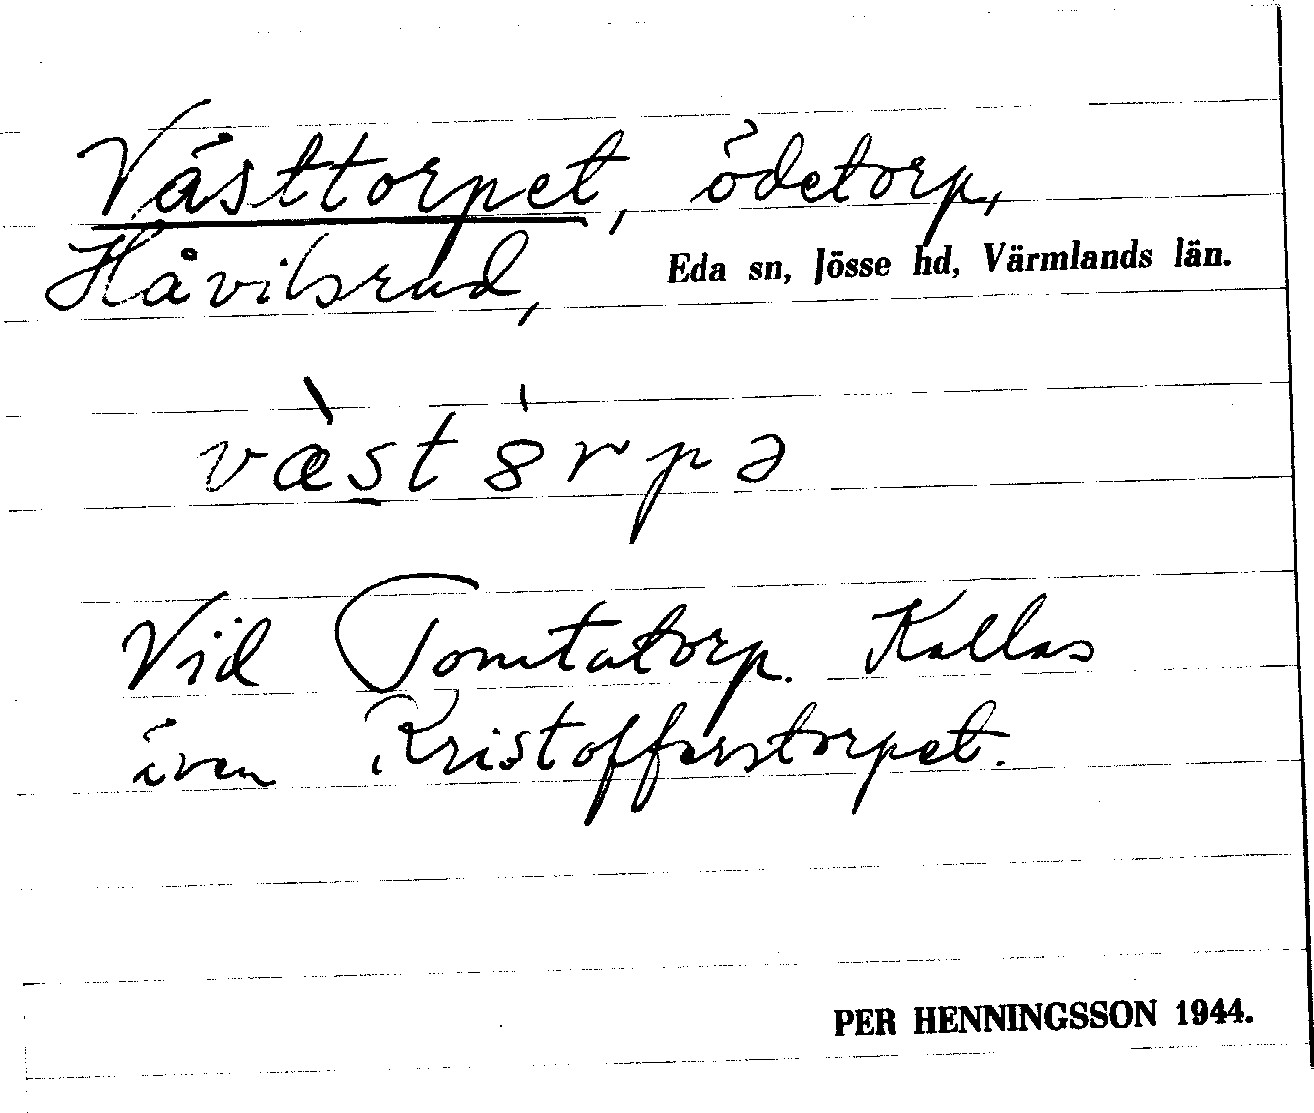 Västtorpet, ödetorp,
Håvilsrud, Eda sn, Jösse hd, Värmlands län.
væ̀st ȣ̍rpə
Vid Tomtatorp. Kallas
även Kristofferstorpet.
PER HENNINGSSON 1944.